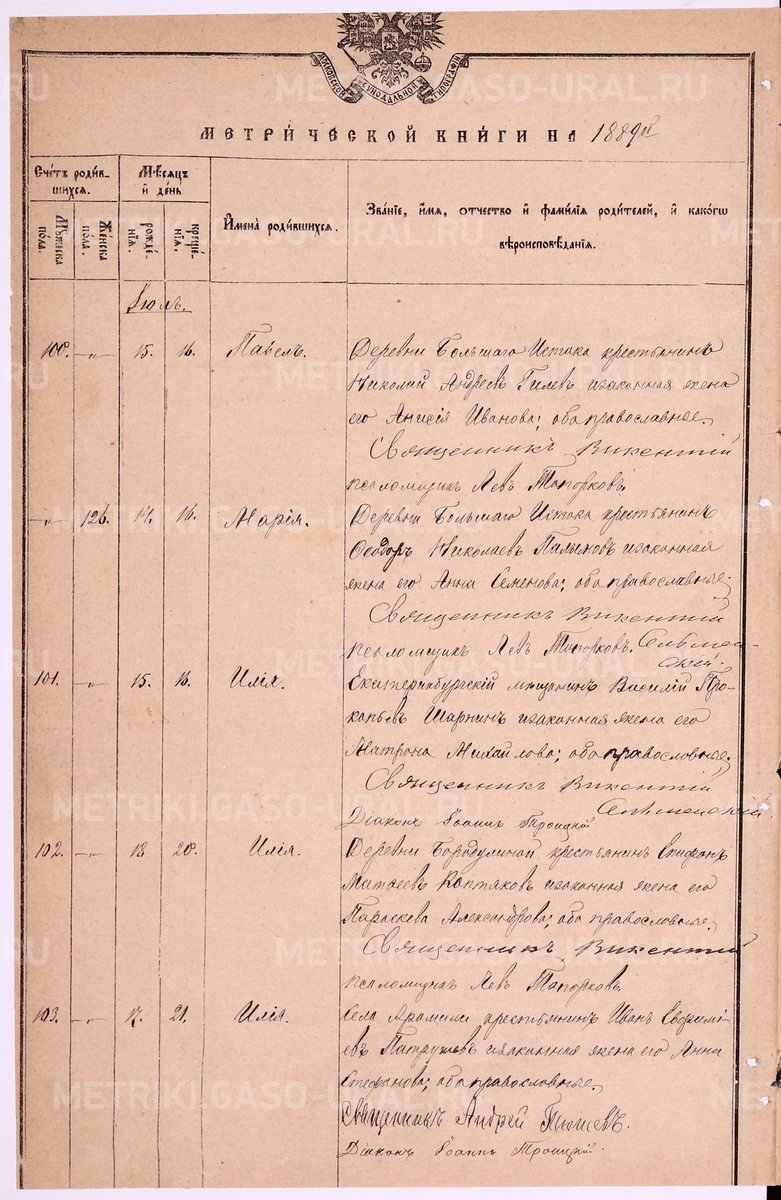 МОСКОВСКОЙ СѴНОДАЛЬНОЙ ТИПОГРАФІИ
МЕТРИЧЕСКОЙ КНИГИ НА 1889й
Счетъ родив-
шихся.
Мѣсяцъ
и день
Имена родившихся.
Званіе, имя, отчество и фамилія родителей, и какогѡ
вѣроисповѣданія.
Мужеска
пола.
Женска
пола.
рожде-
нія.
креще-
нія.
Іюль.
100. —„— 15. 16. Павелъ. Деревни Большаго Истока крестьянинъ
Николай Андреевъ Гилевъ и законная жена
его Анисія Иванова; оба православные.
Священникъ Викентій
псаломщикъ Левъ Топорковъ
—„— 126. 14. 16. Марія. Деревни Большаго Истока крестьянинъ
Ѳеодоръ Николаевъ Палкинъ и законная
жена его Анна Семенова; оба православные.
Священникъ Викентій
псаломщикъ Левъ Топорковъ.
101. —„— 15. 18. Илія. Екатеринбургскій мѣщанинъ Василій Про-
копьевъ Шарнинъ и законная жена его
Матрона Михайлова; оба православные.
Священникъ Викентій
Діаконъ Іоаннъ Троицкій
102. —„— 18 20. Илія. Деревни Бородулиной крестьянинъ Епифанъ
Матѳеевъ Коптяковъ и законная жена его
Параскева Александрова; оба православные.
Священникъ Викентій
псаломщикъ Левъ Топорковъ
103. —„— 17. 21. Илія. Села Арамили крестьянинъ Иванъ Евфимі-
евъ Патрушевъ и законная жена его Анна
Стефанова; оба православные.
Священникъ Андрей
Діаконъ Іоаннъ Троицкій
METRIKI.GASO-URAL.RU